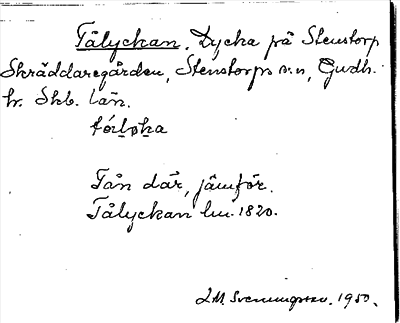 Tålyckan. Lycka på Stenstorp
Skräddaregården, Stenstorps sn, Gudh.
hr. Skb. län.
tó̄lyka
Tån där, jämför.
Tålyckan lm. 1820.
1950.